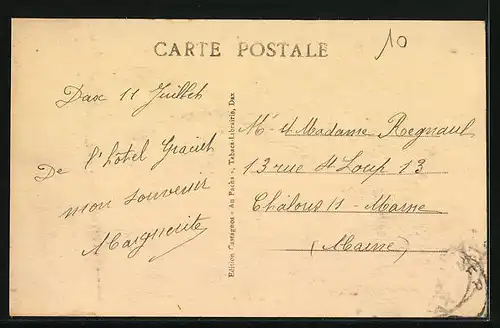 CARTE POSTALE
10
Dax 11 Juillet
De l'hôtel Graciet
mon souvenir
Marguerite
Edition Castagnos - Au Pacha -, Tabacs-Librairie, Dax
Mr et Madame Regnaul
13 rue St Loup 13
Châlons s - Marne
(Marne)